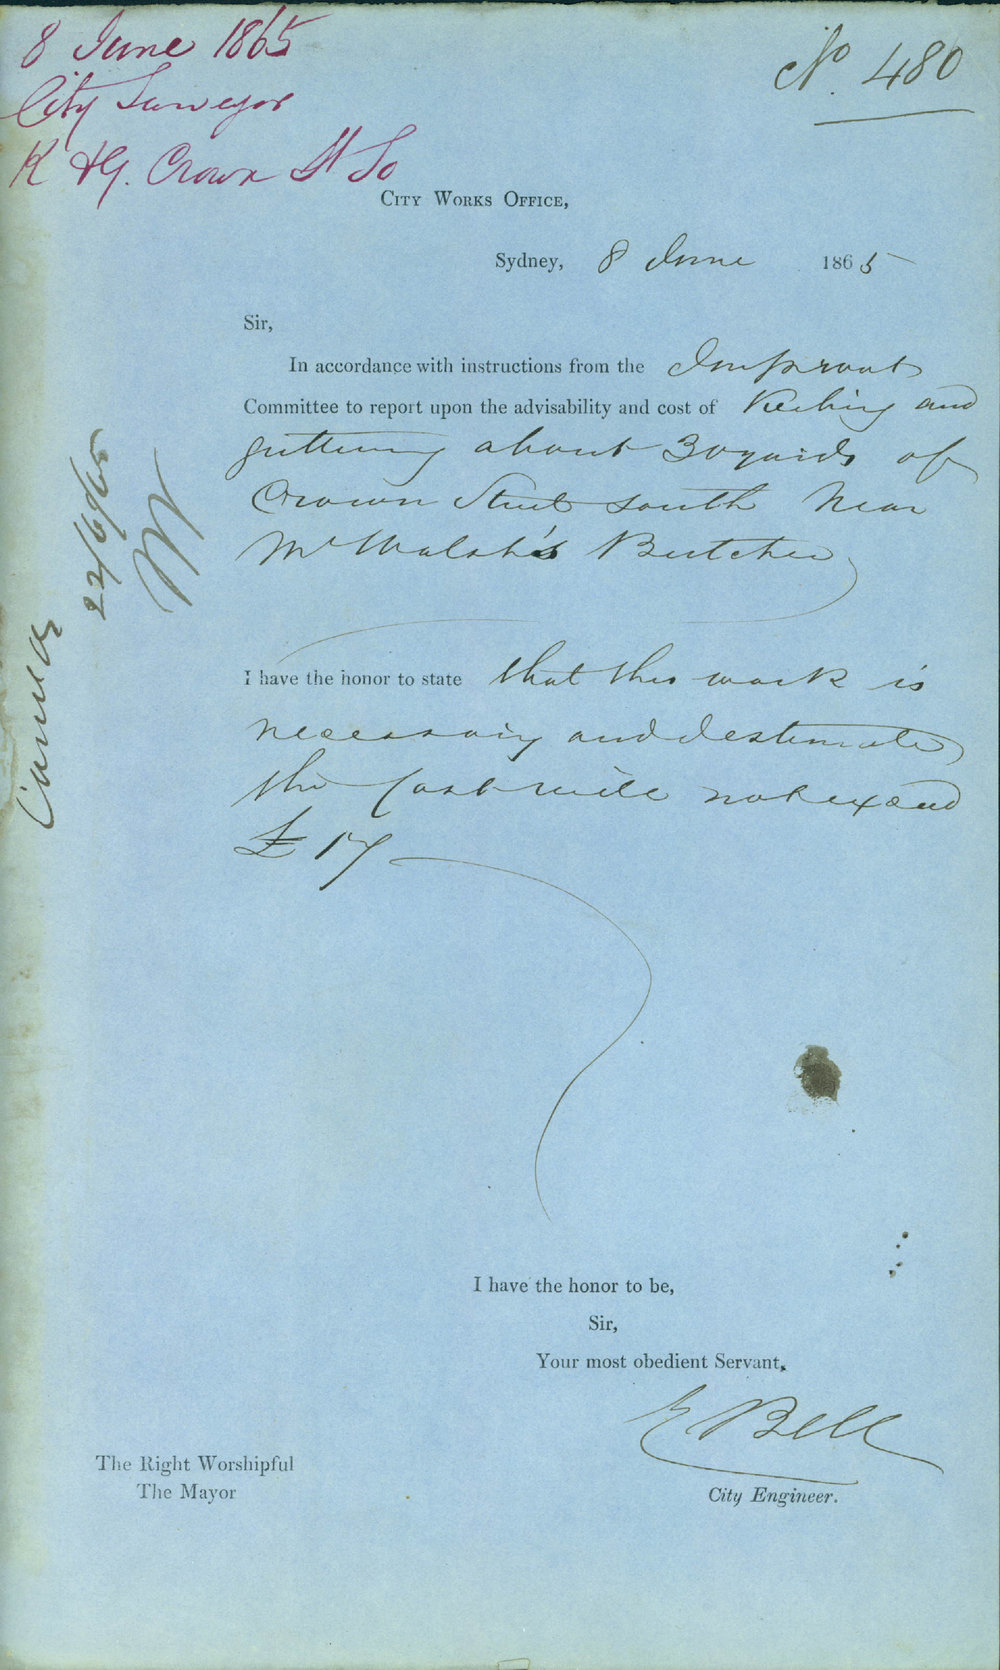 8 June 1865
City Surveyor
K & G. Crown St So
No. 480
City Works Office,
Sydney, 8 June 1865
Sir,
In accordance with instructions from the Improvt
Committee to report upon the advisability and cost of Kerbing and
guttering about 30 yards of
Crown Street South Near
Mr Walsh's Butcher
I have the honor to state that this work is
necessary and I estimate
the Cost will not exceed
£17
I have the honor to be,
Sir,
Your most obedient Servant,
E Bell
City Engineer.
The Right Worshipful
The Mayor
22/6/65